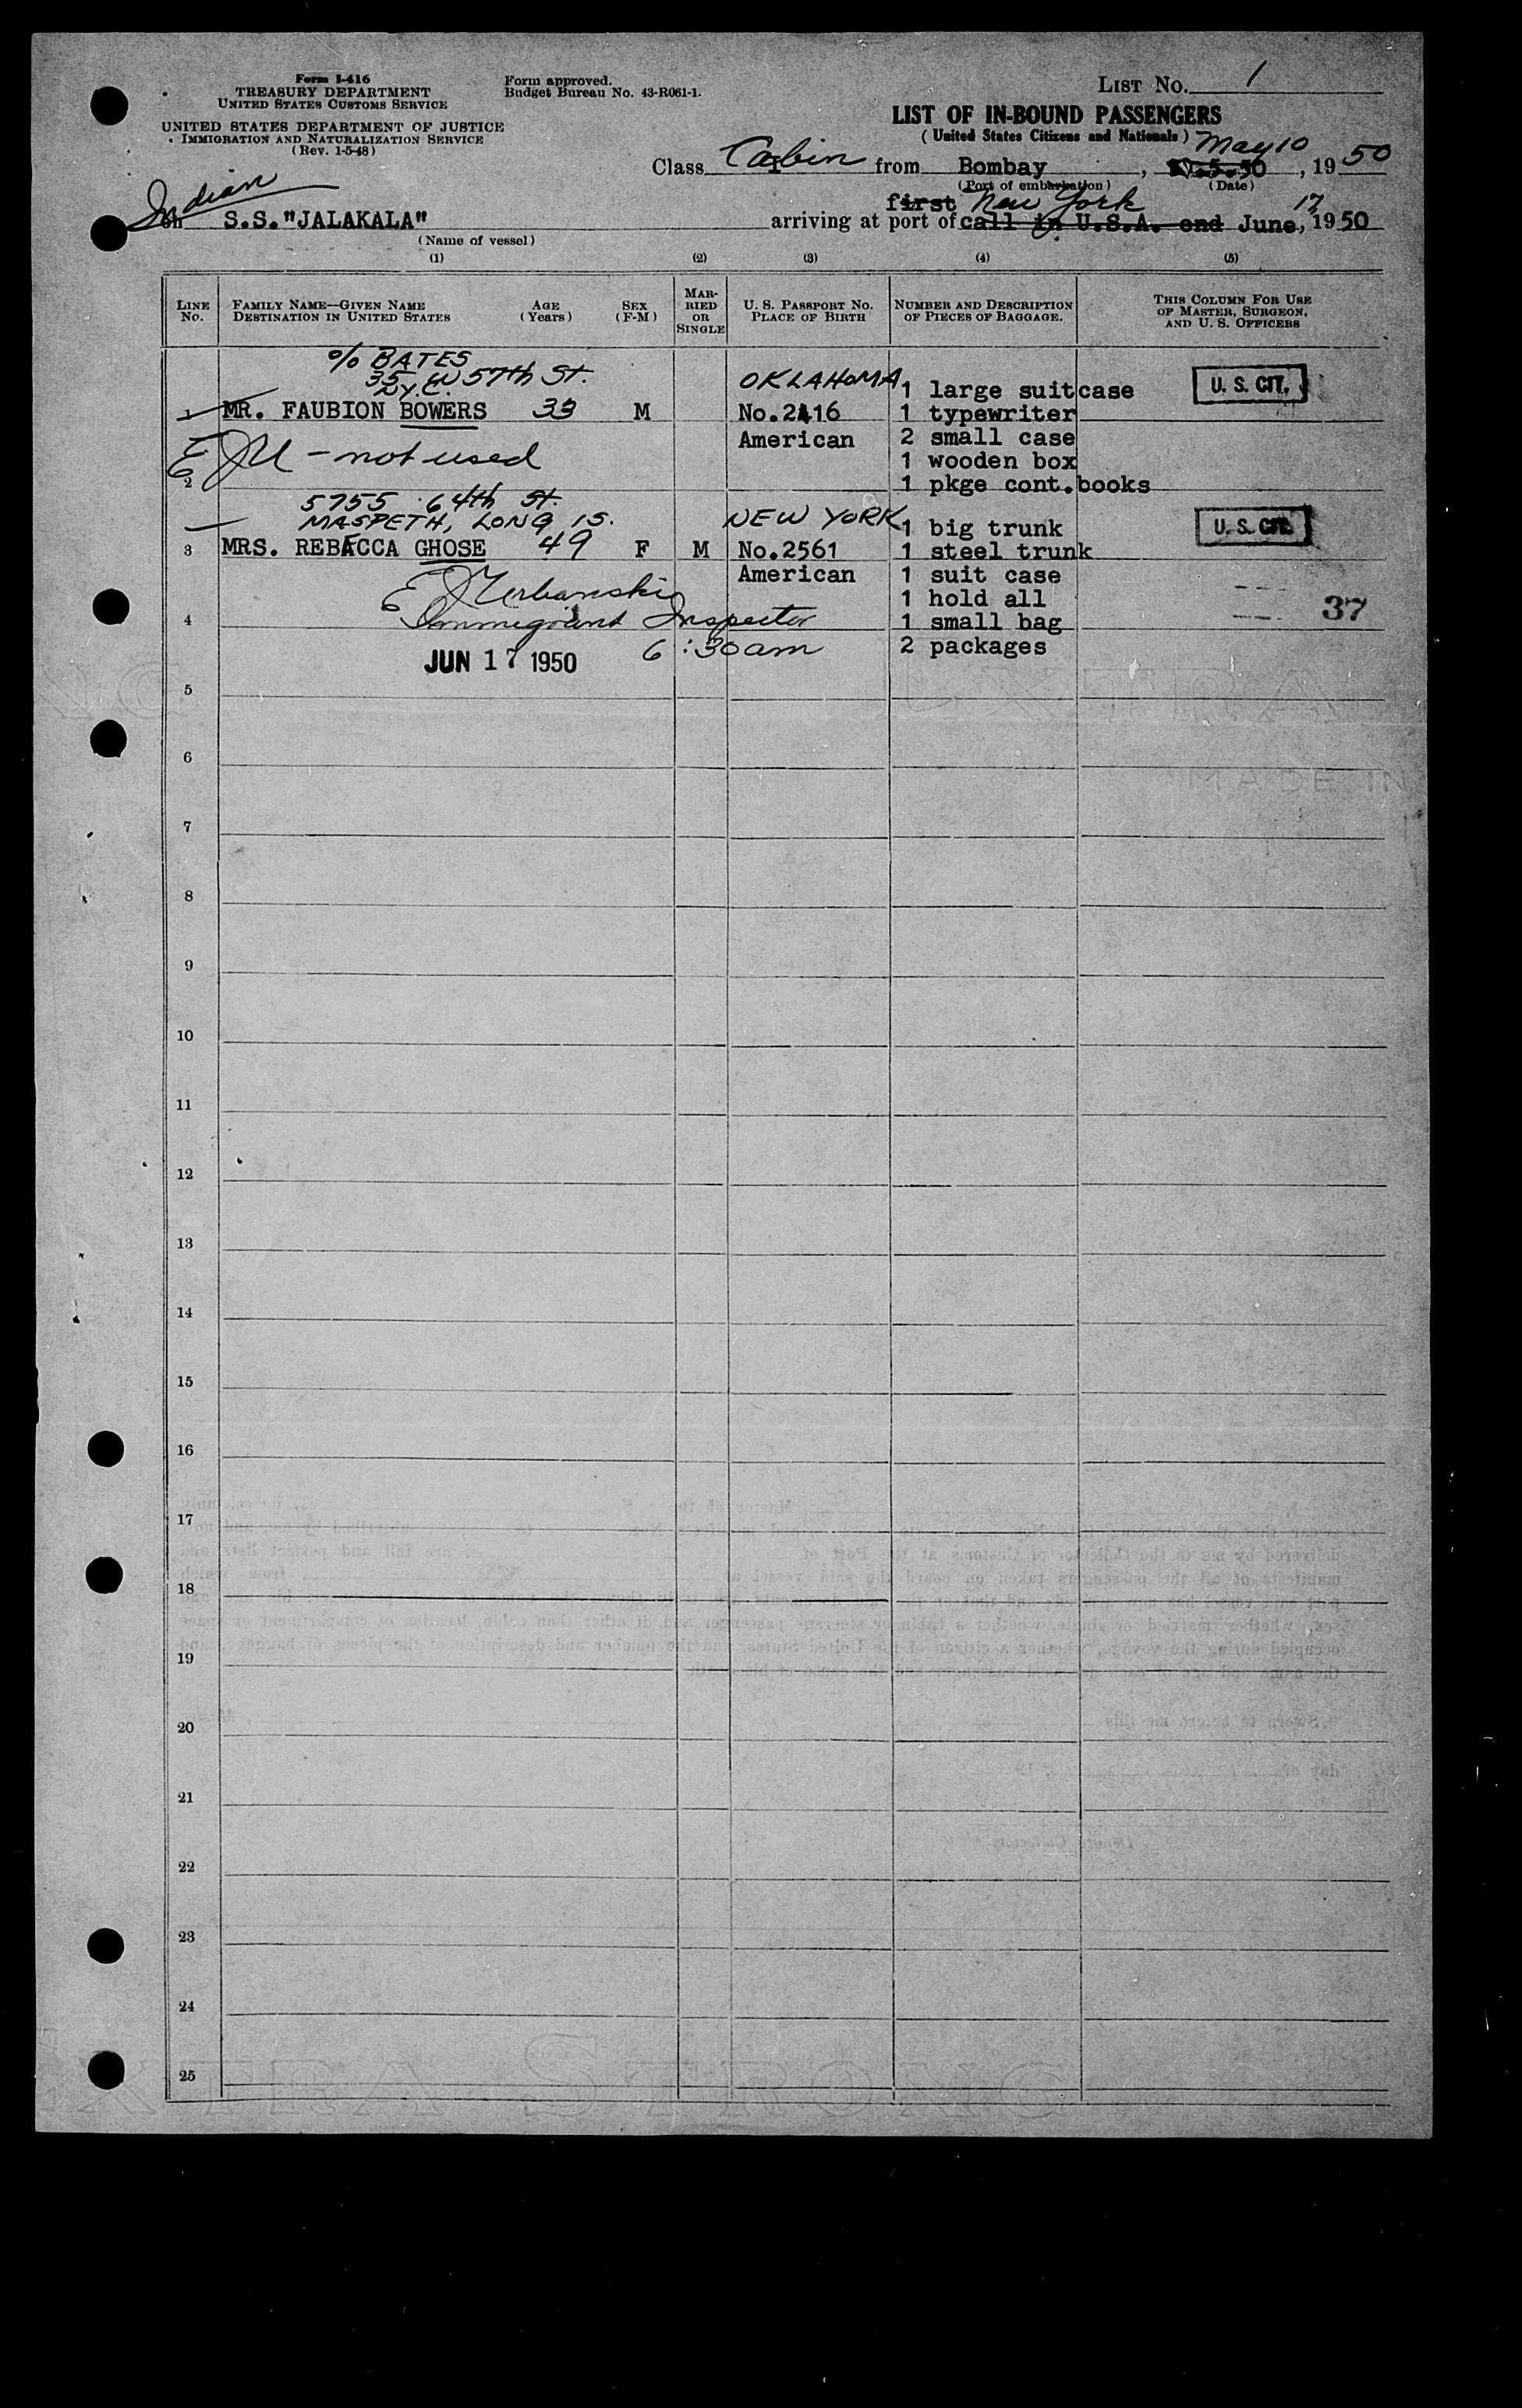 Form I-416
TREASURY DEPARTMENT
UNITED STATES CUSTOMS SERVICE
UNITED STATES DEPARTMENT OF JUSTICE
IMMIGRATION AND NATURALIZATION SERVICE
(Rev. 1-5-48)
Form approved.
Budget Bureau No. 43-R061-1.
LIST No. 1
LIST OF IN-BOUND PASSENGERS
(United States Citizens and Nationals)
Class Cabin from Bombay, May 10, 1950
(Port of embarkation) (Date)
Indian
on S.S."JALAKALA" arriving at port of first call in U.S.A. end New York June, 17 1950
(Name of vessel)
(1) (2) (3) (4) (5)
LINE No. FAMILY NAME—GIVEN NAME DESTINATION IN UNITED STATES AGE (Years) SEX (F-M) MARRIED OR SINGLE U. S. PASSPORT NO. PLACE OF BIRTH NUMBER AND DESCRIPTION OF PIECES OF BAGGAGE. THIS COLUMN FOR USE OF MASTER, SURGEON, AND U. S. OFFICERS
% BATES
35 W 57th St.
N.Y.C. OKLAHOMA 1 large suitcase U. S. CIT.
1 MR. FAUBION BOWERS 33 M No.2416 1 typewriter
American 2 small case
EJU - not used 1 wooden box
2 1 pkge cont.books
5755 64th St.
MASPETH, LONG IS. NEW YORK 1 big trunk U. S. CIT.
3 MRS. REBECCA GHOSE 49 F M No.2561 1 steel trunk
American 1 suit case
E J Urbanski 1 hold all
4 Immigrant Inspector 1 small bag 37
JUN 17 1950 6:30am 2 packages
5
6
MADE IN
7
8
9
10
11
12
13
14
15
16
17
18
19
20
21
22
23
24
25